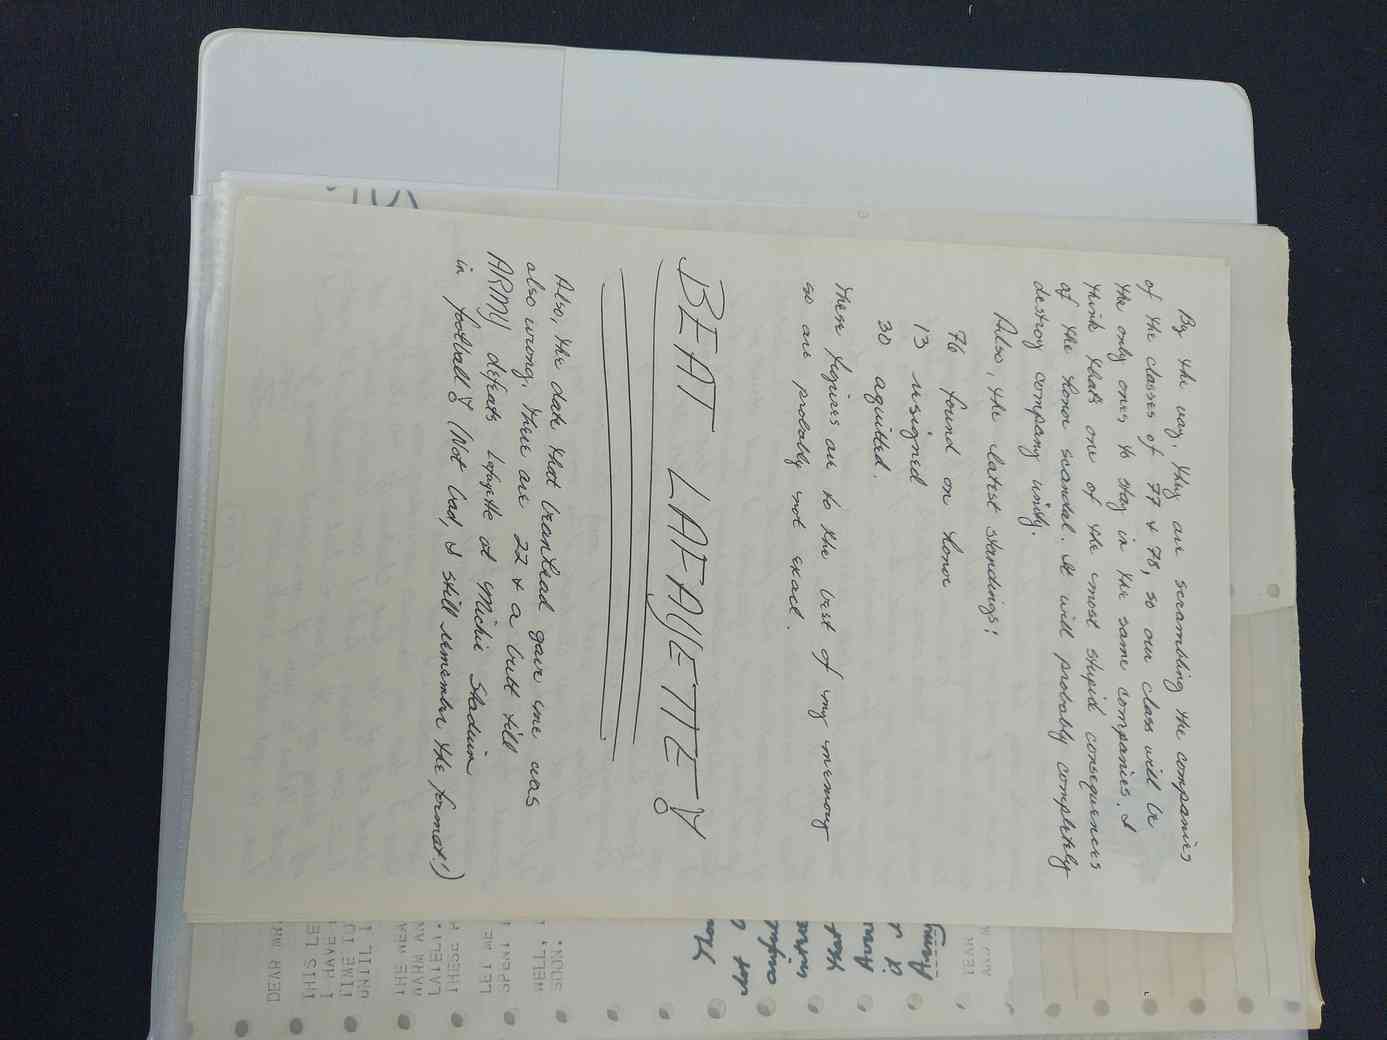 By the way, they are scrambling the companies
of the classes of 77 & 78, so our class will be
the only ones to stay in the same companies. I
think thats one of the most stupid consequences
of the honor scandal. It will probably completely
destroy company unity.
Also, the latest standings:
76 found on honor
13 resigned
30 aquitted.
These figures are to the best of my memory
so are probably not exact.
BEAT LAFAYETTE!
Also, the date that gave me was
also wrong. There are 22 & a butt till
ARMY defeats Lafayette at Michie Stadium
in football! (Not bad, I still remember the format!)
DEAR
THIS LE
I HAVE
TIME TO
UNTIL I
THE
LATEL
THESE
LET
SPENT
WELL,
SOON.